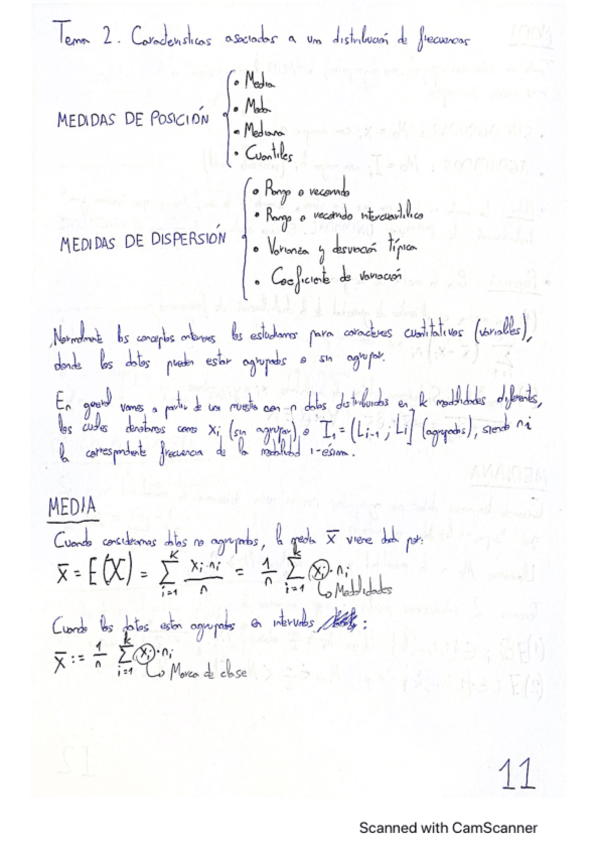 Tema 2. Características asociadas a una distribución de frecuencias
MEDIDAS DE POSICIÓN
• Media
• Moda
• Mediana
• Cuantiles
MEDIDAS DE DISPERSIÓN
• Rango o recorrido
• Rango o recorrido intercuartílico
• Varianza y desviación típica
• Coeficiente de variación
Normalmente los conceptos anteriores los estudiamos para caracteres cuantitativos (variables),
donde los datos pueden estar agrupados o sin agrupar.
En general vamos a partir de una muestra con n datos distribuidos en k modalidades diferentes,
las cuales denotamos como xi (sin agrupar) o I₁ = (Li-1 ; Li] (agrupados), siendo ni
la correspondiente frecuencia de la modalidad i-ésima.
MEDIA
Cuando consideramos datos no agrupados, la media x̄ viene dada por:
x̄ = E(X) = Σ_{i=1}^{k} xi·ni / n = 1/n Σ_{i=1}^{k} xi·ni
↳ Modalidades
Cuando los datos están agrupados en intervalos :
x̄ := 1/n Σ_{i=1}^{k} xi·ni
↳ Marca de clase
11
Scanned with CamScanner